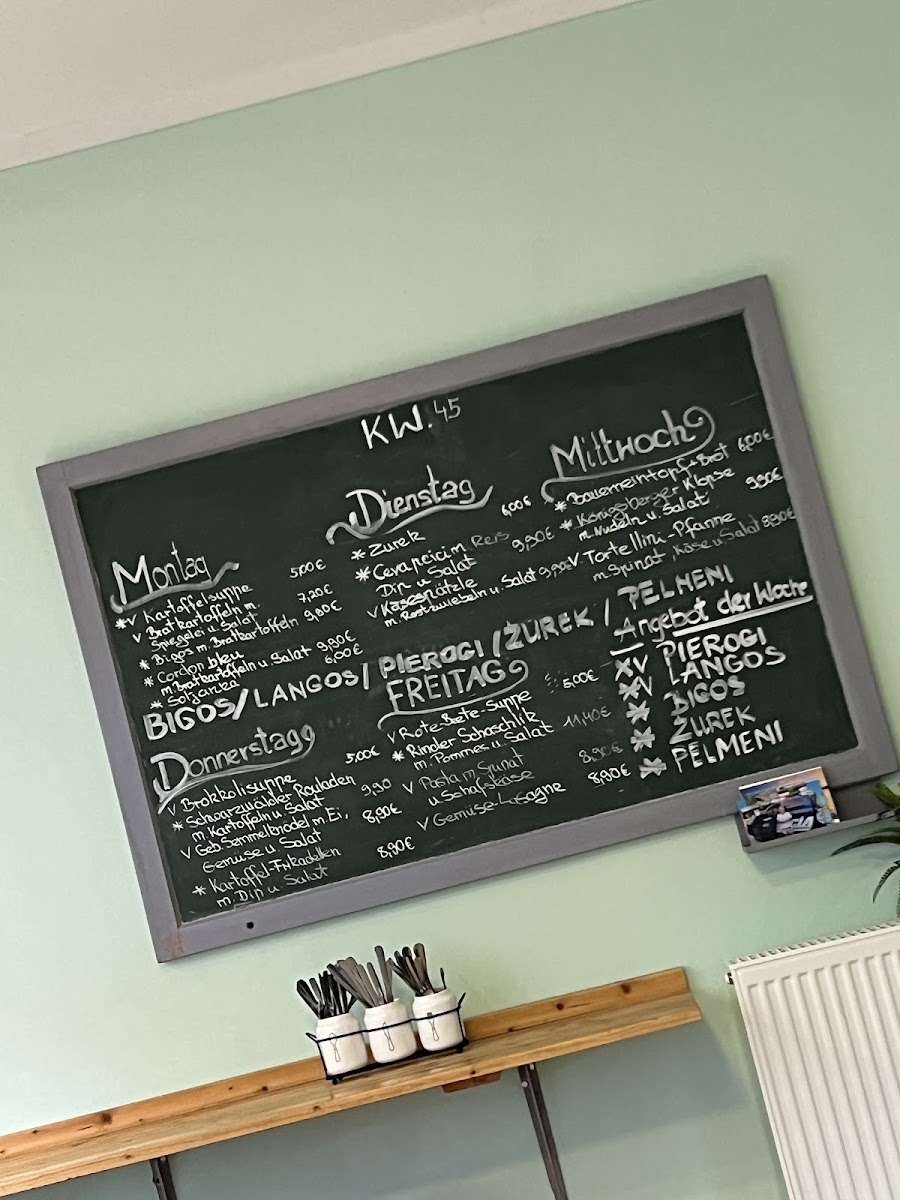 KW. 45
Montag
*v Kartoffelsuppe 5,00€
v Bratkartoffeln m. 7,20€
Spiegelei u Salat
* Bigos m. Bratkartoffeln 9,80€
* Cordon bleu
m Bratkartoffeln u Salat 9,90€
* Soljanza 6,00€
Dienstag
* Zurek 6,00€
* Cevapcici m. Reis 9,90€
Dip u Salat
v Käsespätzle
m. Röstzwiebeln u. Salat 9,90€
Mittwoch
* Bauerneintopf + Brot 6,00€
* Königsberger Klopse
m. Nudeln u. Salat 9,90€
v Tortellini-Pfanne
m. Spinat, Käse u. Salat 8,90€
BIGOS/LANGOS/PIEROGI/ZUREK/PELMENI
Donnerstag
v Brokkolisuppe 5,00€
* Schwarzwälder Rouladen 9,90
m. Kartoffeln u Salat
v Geb Semmelknödel m. Ei, 8,90€
Gemüse u Salat
* Kartoffel-Frikadellen
m. Dip u. Salat 8,90€
FREITAG
v Rote-Beete-Suppe 5,00€
* Rinder Schaschlik
m. Pommes u. Salat 11,40€
v Pasta m Spinat
u Schafskäse 8,90€
v Gemüse-Lasagne 8,90€
Angebot der Woche
*v PIEROGI
*v LANGOS
* BIGOS
* ZUREK
* PELMENI